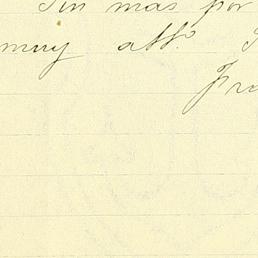 Sin mas por
muy atto. S
Fra